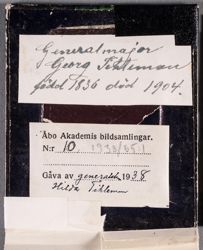 Generalmajor
Georg Tihleman
född 1836 död 1904.
Åbo Akademis bildsamlingar.
N:r 10 1938/851
Gåva av generalsk. 1938
Hilda Tihleman